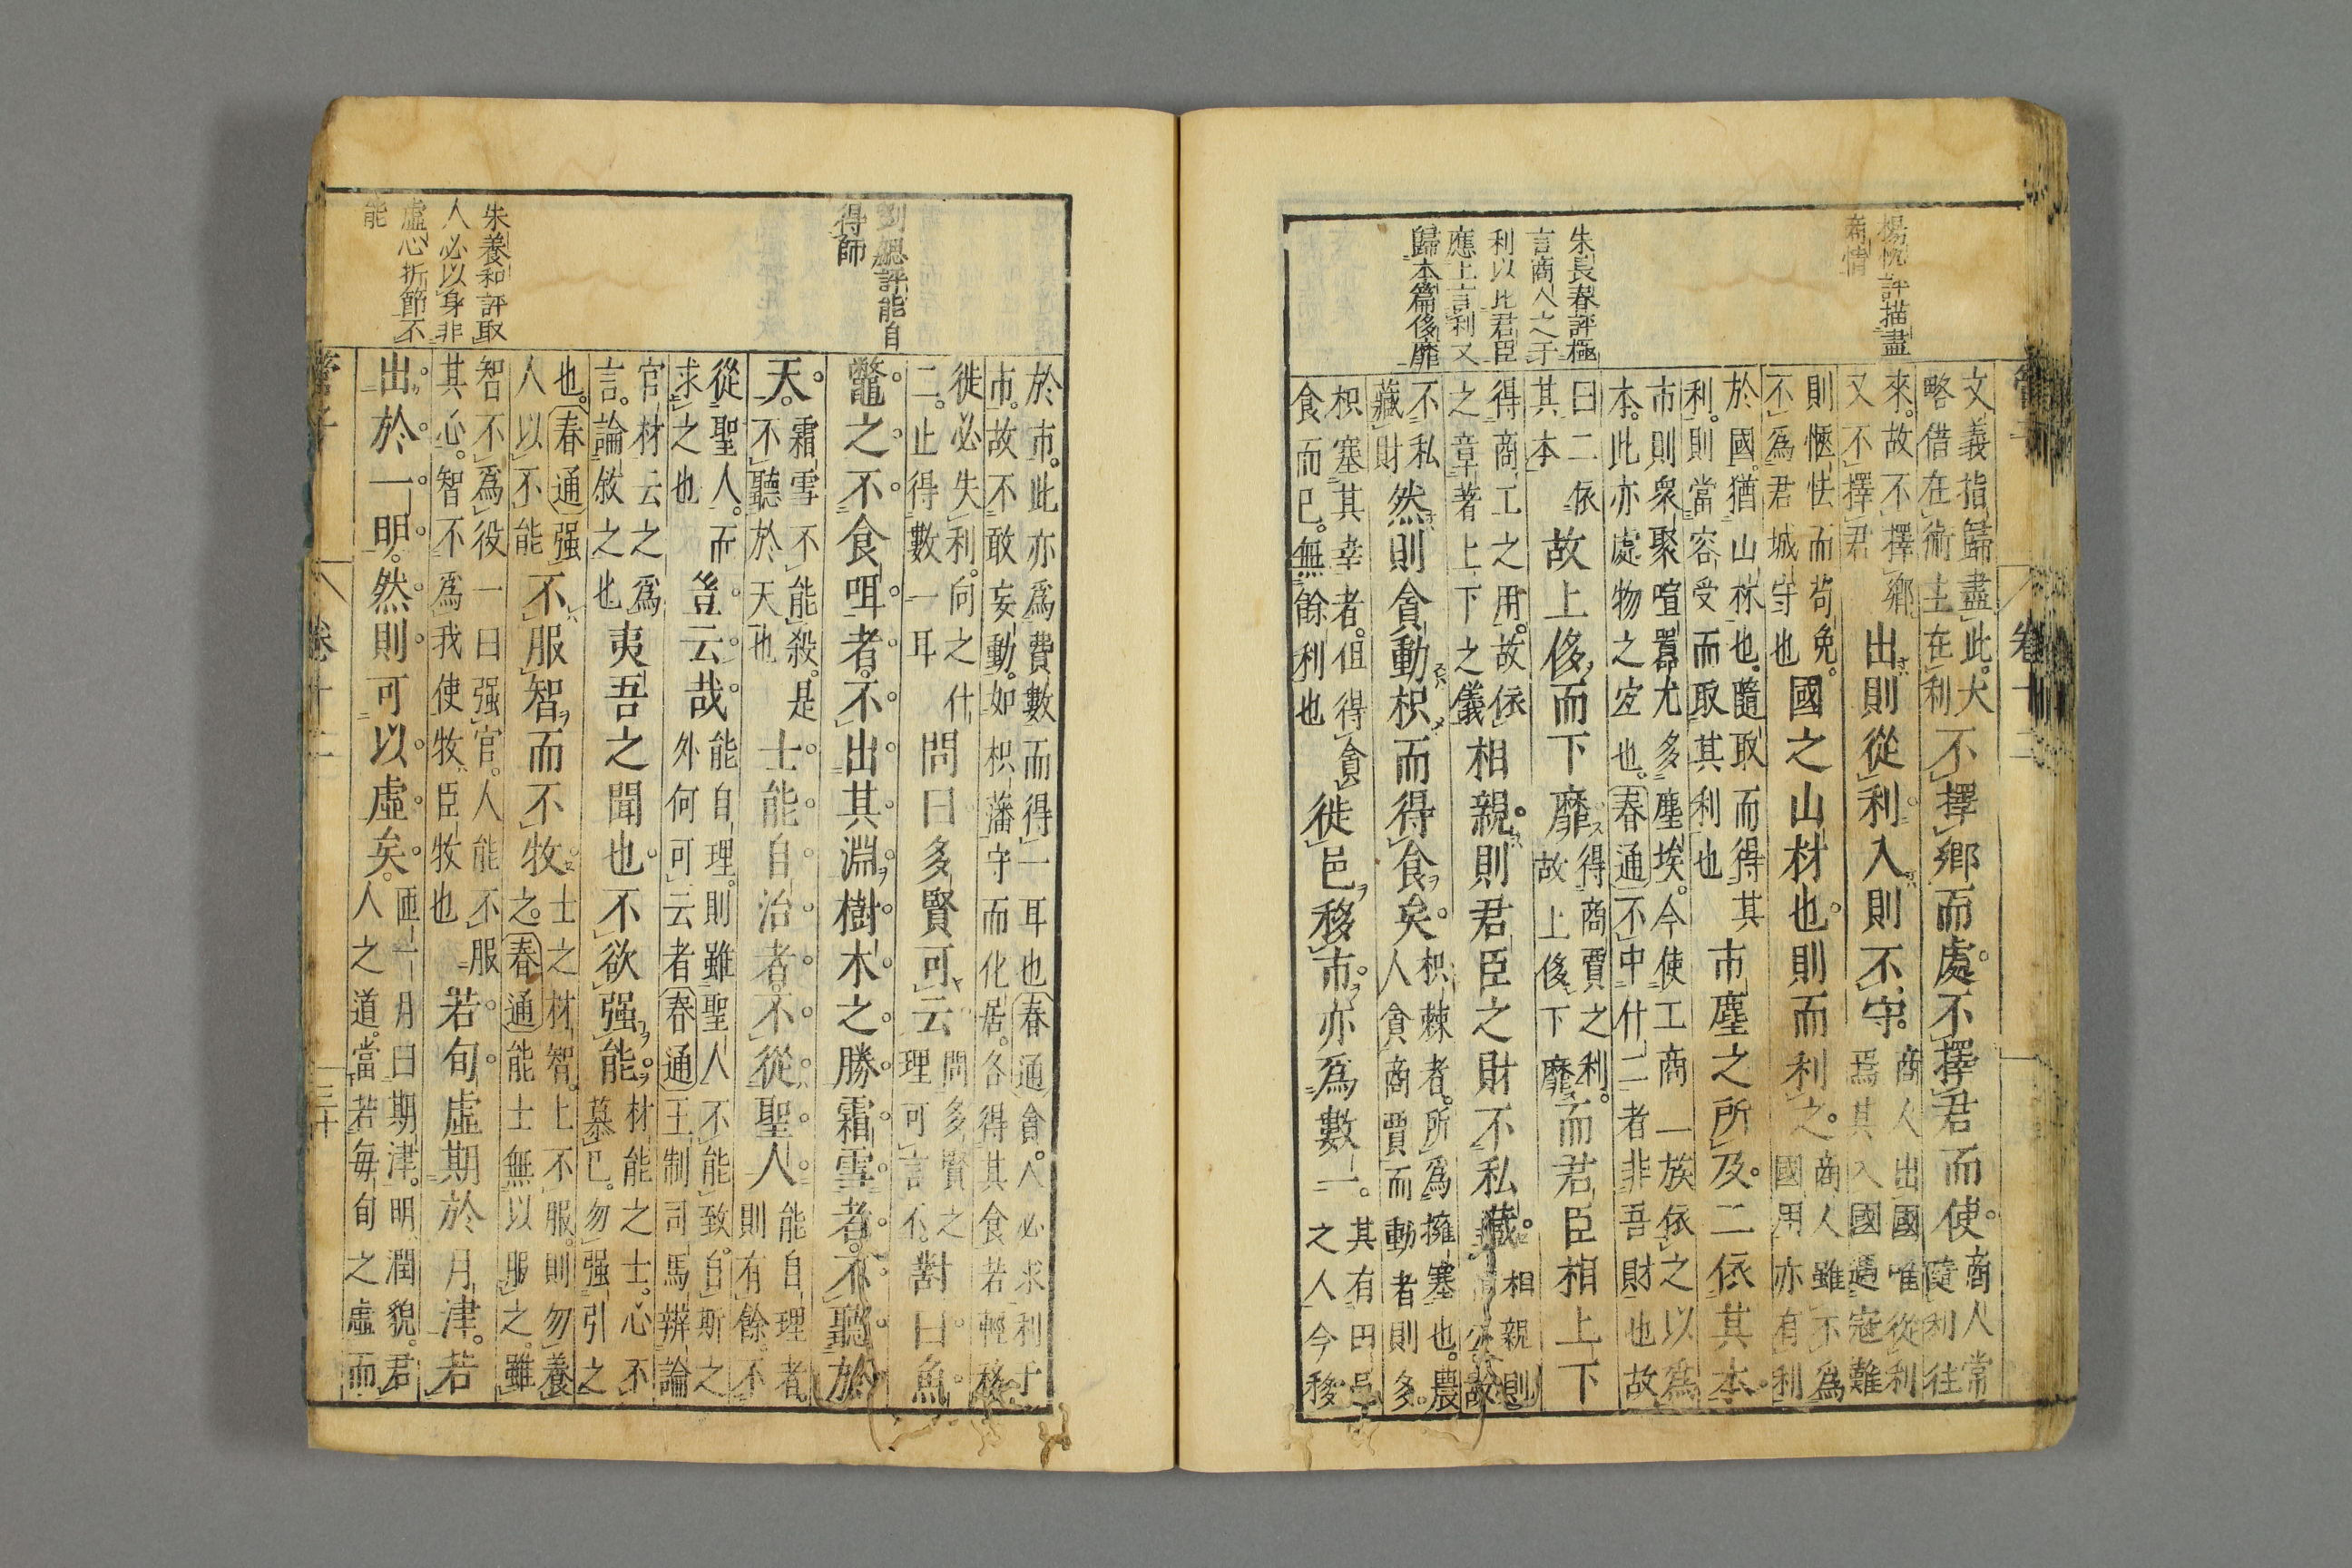 楊忱評描盡
商情
朱長春評極
言商人之于
利以比君臣
應上言利又
歸本篇侈靡
文義指歸盡此。大
略借在術主在利
不擇鄉而處。不擇君而使。
商人常
隨利往
來。故不擇鄉。
又不擇君
出則從利。入則不守。
商人出國唯從利
焉其入國遇寇難
則愜怯而苟免。
不為君城守也
國之山材也。則而利之。
商人雖不為
國用亦有利
於國。猶山林也。隨取而得其
利。則當容受而取其利也
市塵之所及。二依其本。
市則衆聚喧囂尤多塵埃。今使工商一族依之以為
本。此亦處物之宜也。春通不中什二者非吾財也故
曰二依
其本
故上侈而下靡
得商賈之利。
故上侈下靡
而君臣相上下
得商工之用。故依
之章著上下之儀
相親。則君臣之財不私藏。
相親則
故
不私
藏財
然則貪動枳而得食矣。
枳棘者。所為擁塞也。農
人貪商賈而動者則多。
枳塞其幸者。但得貪
食而已。無餘利也
徙邑移市。亦為數一。
其有田邑
之人今移
於市。此亦為費數而得一耳也春通貪人必求利于
市。故不敢妄動。如枳藩守而化居。各得其食若輕移
徙必失利。向之什
二。止得數一耳
問曰多賢可云
問多賢之
理可言不。
對曰魚
鼈之不食咡者。不出其淵。樹木之勝霜雪者。不聽於
天。
霜雪不能殺。是
不聽於天也
士能自治者。不從聖人。
能自理者
則有餘。不
從聖人。而
求之也
豈云哉。
能自理。則雖聖人不能致。自斯之
外何可云者春通王制司馬辨論
官材云之為
言。論敘之也
夷吾之聞也。不欲强能。
材能之士。心不
慕已。勿强引之
也。春通强
人以不能
不服智而不牧
士之材智。上不服。則勿養
之。春通能士無以服之。雖
智不為役一曰强官。人能不服
其心。智不為我使牧臣牧也
若旬虛期於月津。若
出於一明。然則可以虛矣。
匝一月曰期津。明潤貌。君
人之道。當若毎旬之虛而
劉勰評能自
得師
朱養和評取
人必以身非
虛心折節不
能
管子
卷十二
三十